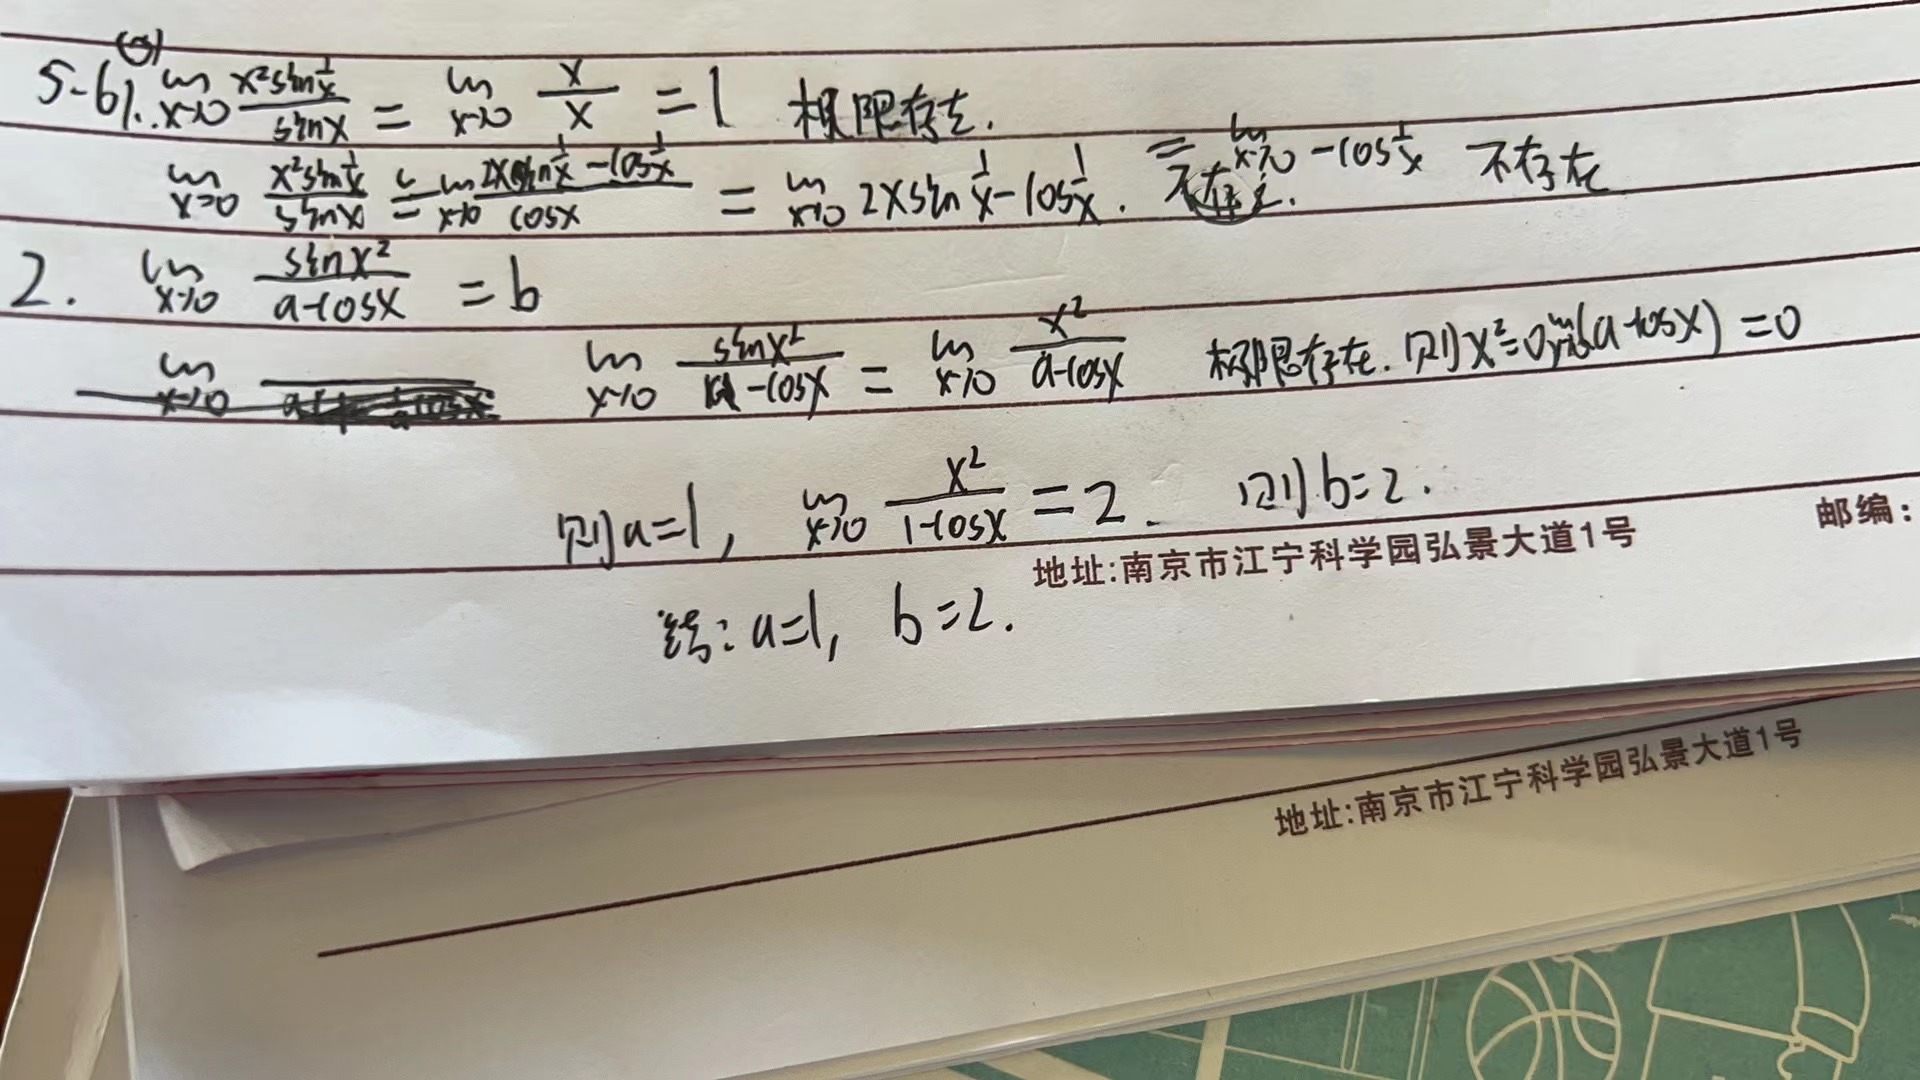 5-6 1. (3) lim x→0 x²sin1/x / sinx = lim x→0 x/x = 1 极限存在.
lim x→0 x²sin1/x / sinx = lim x→0 2xsin1/x - cos1/x / cosx = lim x→0 2xsin1/x - cos1/x. 不存在. = lim x→0 -cos1/x 不存在
2. lim x→0 sinx² / a-cosx = b
lim x→0 lim x→0 sinx² / a-cosx = lim x→0 x² / a-cosx 极限存在. 则x²=0 lim x→0 (a-cosx) = 0
则a=1, lim x→0 x² / 1-cosx = 2. 则b=2.
地址:南京市江宁科学园弘景大道1号 邮编:
a=1, b=2.
地址:南京市江宁科学园弘景大道1号